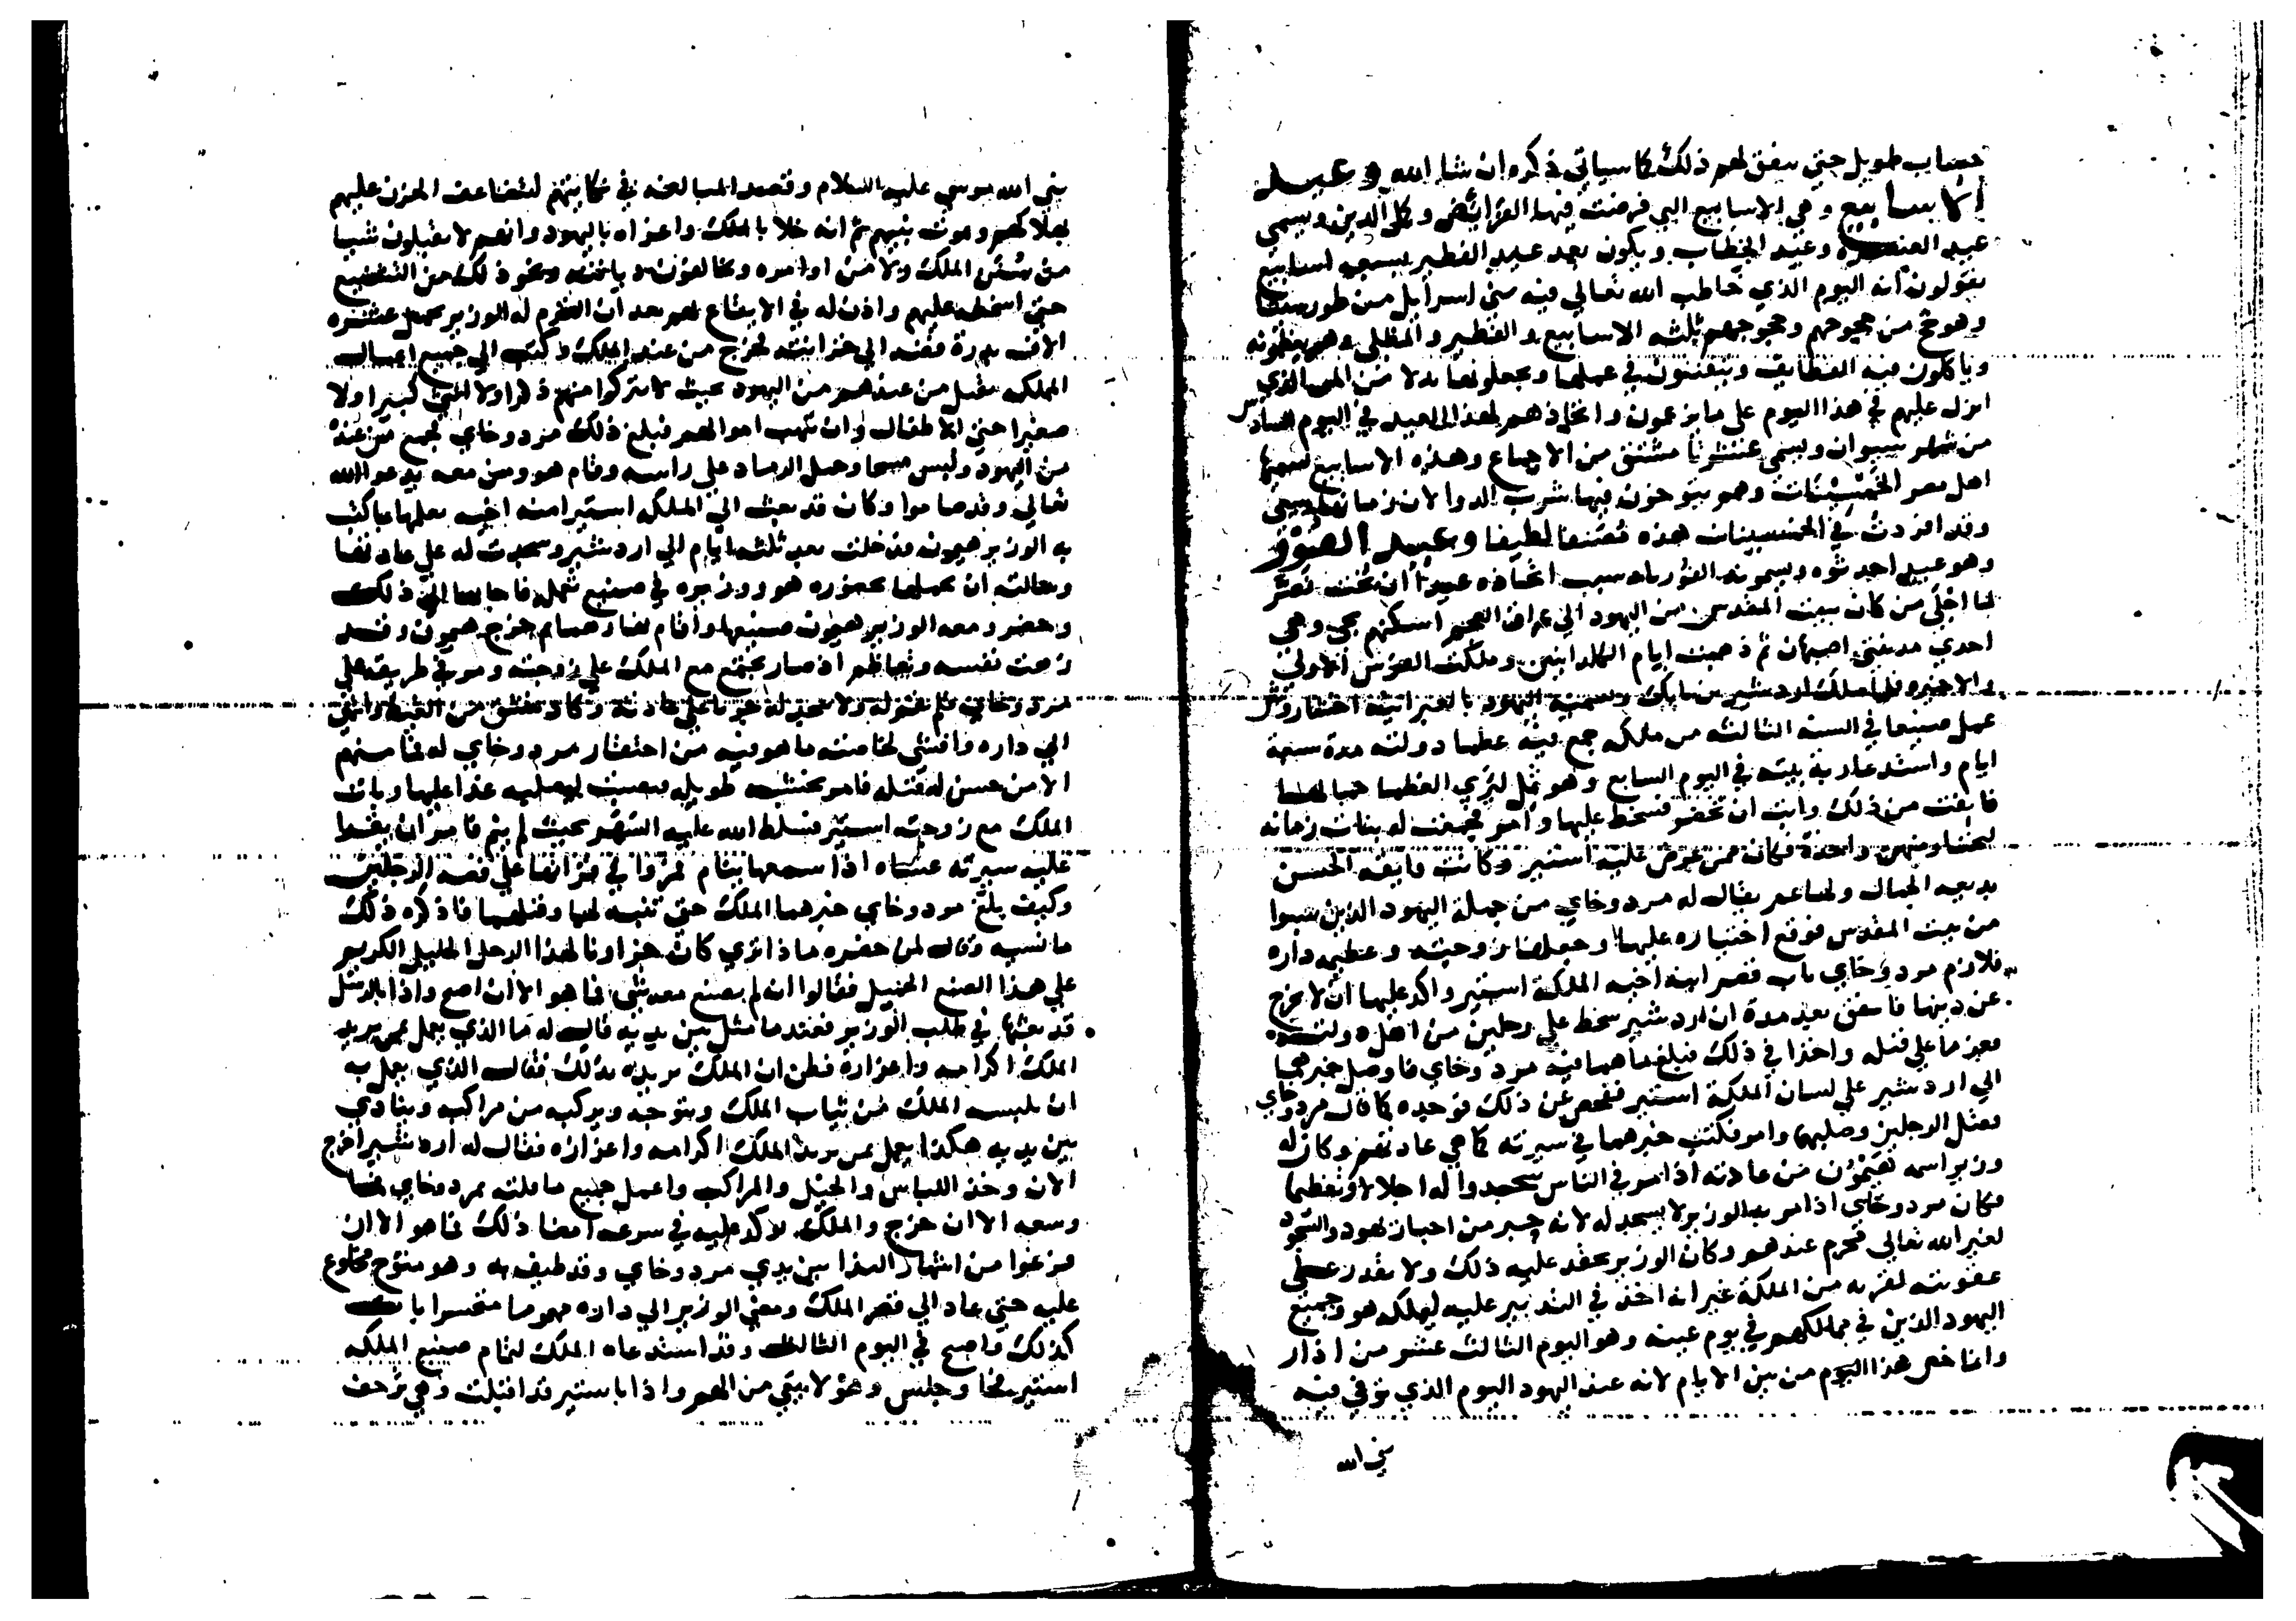 حساب طويل حتي يتفق لهم ذلك كما سياتي ذكره ان شا الله وعيد
الاسابيع وهي الاسابيع التي فرضت فيها الفرائض وكمل الدين ويسمي
عيد العنصره وعيد الخطاب ويكون بعد عيد الفطير بسبعه اسابيع
يقولون انه اليوم الذي خاطب الله تعالي فيه بني اسرايل من طور سينا
وهو حج من حجوجهم وحجوجهم ثلثه الاسابيع والفطير والمظلي وهم يعظمونه
وياكلون فيه القطايف ويتفننون في عملها ويجعلونها بدلا من المن الذي
انزل عليهم في هذا اليوم علي ما يزعمون واتخاذهم لهذا العيد في اليوم السادس
من شهر سيوان ويسمي عشرتا مشتق من الاجماع وهذه الاسابيع يسميها
اهل مصر الخمسينات وهم يتوخون فيها شرب الدوا لان زمانها
وقد افردت في الخمسينات هذه مصنفا لطيفا وعيد الفوز
وهو عيد احدثوه ويسمونه الفوريا وسبب اتخاذه عيدا ان بخت نصر
لما اجلي من كان ببيت المقدس من اليهود الي عراق العجم اسكنهم جي وهي
احدي مدينتي اصبهان ثم ذهبت ايام الكلدانيين وملكت الفرس الاولي
والاخيره فلما ملك اردشير بن بابك وتسميه اليهود بالعبرانيه احشارونش
عمل صنيعا في السنه الثالثه من ملكه جمع فيه عظما دولته مدة سبعة
ايام واستدعا ربة بيته في اليوم السابع وهو ثمل لتري العظما جمالها
فانفت من ذلك وابت ان تحضر فسخط عليها وامر فجمعت له بنات زمانه
ليختار منهن واحدة فكان ممن عرض عليه استير وكانت فايقه الحسن
بديعه الجمال ولها عم يقال له مردوخاي من جملة اليهود الذين سبوا
من بيت المقدس فوقع اختياره عليها وجعلها زوجته وعظيمه داره
فلازم مردوخاي باب قصر ابنه اخيه الملكة استير واكد عليها ان لا تخرج
عن دينها فاتفق بعد مدة ان اردشير سخط علي رجلين من اهل دولته
فعزما علي قتله واخذا في ذلك فبلغ ما هما فيه مردوخاي فاوصل خبرهما
الي اردشير علي لسان الملكة استير ففحص عن ذلك فوجده كما قال مردوخاي
فقتل الرجلين وصلبهما وامر فكتب خبرهما في سيرته كما هي عادتهم وكان له
وزير اسمه هيمون من عادته اذا مر في الناس سجدوا له اجلالا وتعظيما
فكان مردوخاي اذا مر به الوزير لا يسجد له لانه حبر من احبار يهود والسجود
لغير الله تعالي محرم عندهم وكان الوزير يحقد عليه ذلك ولا يقدر علي
عقوبته لقربه من الملكة غير انه اخذ في التدبير عليه ليهلكه هو وجميع
اليهود الذين في ممالكهم في يوم عينه وهو اليوم الثالث عشر من اذار
وانما خص هذا اليوم من بين الايام لانه عند اليهود اليوم الذي توفي فيه
نبي الله
نبي الله موسي عليه السلام وقصد المبالغه في نكايتهم لتضاعف الحزن عليهم
بهلاكهم وموت نبيهم ثم انه خلا بالملك واغراه باليهود وانهم لا يقبلون شيا
من سنن الملك ولا من اوامره ويخالفون ديانته ونحو ذلك من التشنيع
حتي اسخطه عليهم واذن له في الايقاع بهم بعد ان التزم له الوزير بحمل عشره
الاف بدرة فضه الي خزاينه فخرج من عند الملك وكتب الي جميع اعمال
المملكه بقتل من عندهم من اليهود بحيث لا يتركوا منهم ذكرا ولا انثي كبيرا ولا
صغيرا حتي الاطفال وان تنهب اموالهم فبلغ ذلك مردوخاي فجمع من عنده
من اليهود ولبس مسحا وجعل الرماد علي راسه وقام هو ومن معه يدعو الله
تعالي وقد صاموا وكان قد بعث الي الملكه استير ابنه اخيه يعلمها بما كتب
به الوزير هيمون فدخلت بعد ثلثه ايام الي اردشير وسجدت له علي عادتها
وسالته ان يجملها بحضوره هو ووزيره في صنيع تعمله فاجابها الي ذلك
وحضر ومعه الوزير هيمون صنيعها واقام نهارهما ثم خرج هيمون وقد
زهت نفسه وتعاظم اذ صار يجتمع مع الملك علي زوجته ومر في طريقه علي
مردوخاي فلم يقم له ولا سجد له جريا علي عادته فكاد ينشق من الغيظ واتي
الي داره وافشي لخاصته ما هو فيه من احتقار مردوخاي له فما منهم
الا من حسن له قتله فامر بخشبه طويله فنصبت ليصلبه غدا عليها وبات
الملك مع زوجته استير فسلط الله عليه السهر بحيث لم ينم فامر ان يقرا
عليه سيرته عساه اذا سمعها ينام فمروا في قراتها علي قصه الرجلين
وكيف بلغ مردوخاي خبرهما الملك حتي تنبه لهما وقتلهما فاذكره ذلك
ما نسيه وقال لمن حضره ماذا تري كان جزاونا لهذا الرجل الجليل الكريم
علي هذا الصنع الجميل فقالوا انه لم يصنع معه شي فما هو الا ان اصبح واذا بالرسل
قد بعثها في طلب الوزير فعندما مثل بين يديه قال له ما الذي يعمل بمن يريد
الملك اكرامه واعزازه فظن ان الملك يريده بذلك فقال الذي يعمل به
ان يلبسه الملك من ثياب الملك ويتوجه ويركبه من مراكبه وينادي
بين يديه هكذا يعمل بمن يريد الملك اكرامه واعزازه فقال له اردشير اخرج
الان وخذ اللباس والخيل والمراكب واعمل جميع ما قلته بمردوخاي فما
وسعه الا ان خرج والملك يوكد عليه في سرعه امضا ذلك فما هو الا ان
فرغوا من اشهار الندا بين يدي مردوخاي وقد طيف به وهو متوج مخلوع
عليه حتي عاد الي قصر الملك ومضي الوزير الي داره مهموما متحسرا بات
كذلك واصبح في اليوم الثالث وقد استدعاه الملك لتمام صنيع الملكه
استير فجا وجلس وهو لا يبين من الهم واذا باستير قد اقبلت وهي ترجف